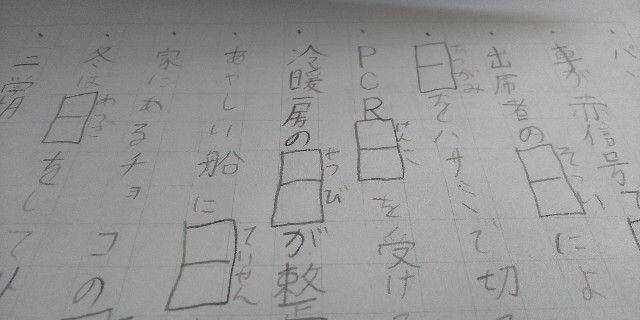 車が赤信号で
出席者の そうい によ
あつがみ をハサミで切
PCR けんさ を受け
冷暖房の せつび が整
あやしい船に ていせん
家にあるチョコの
冬は をして
三学